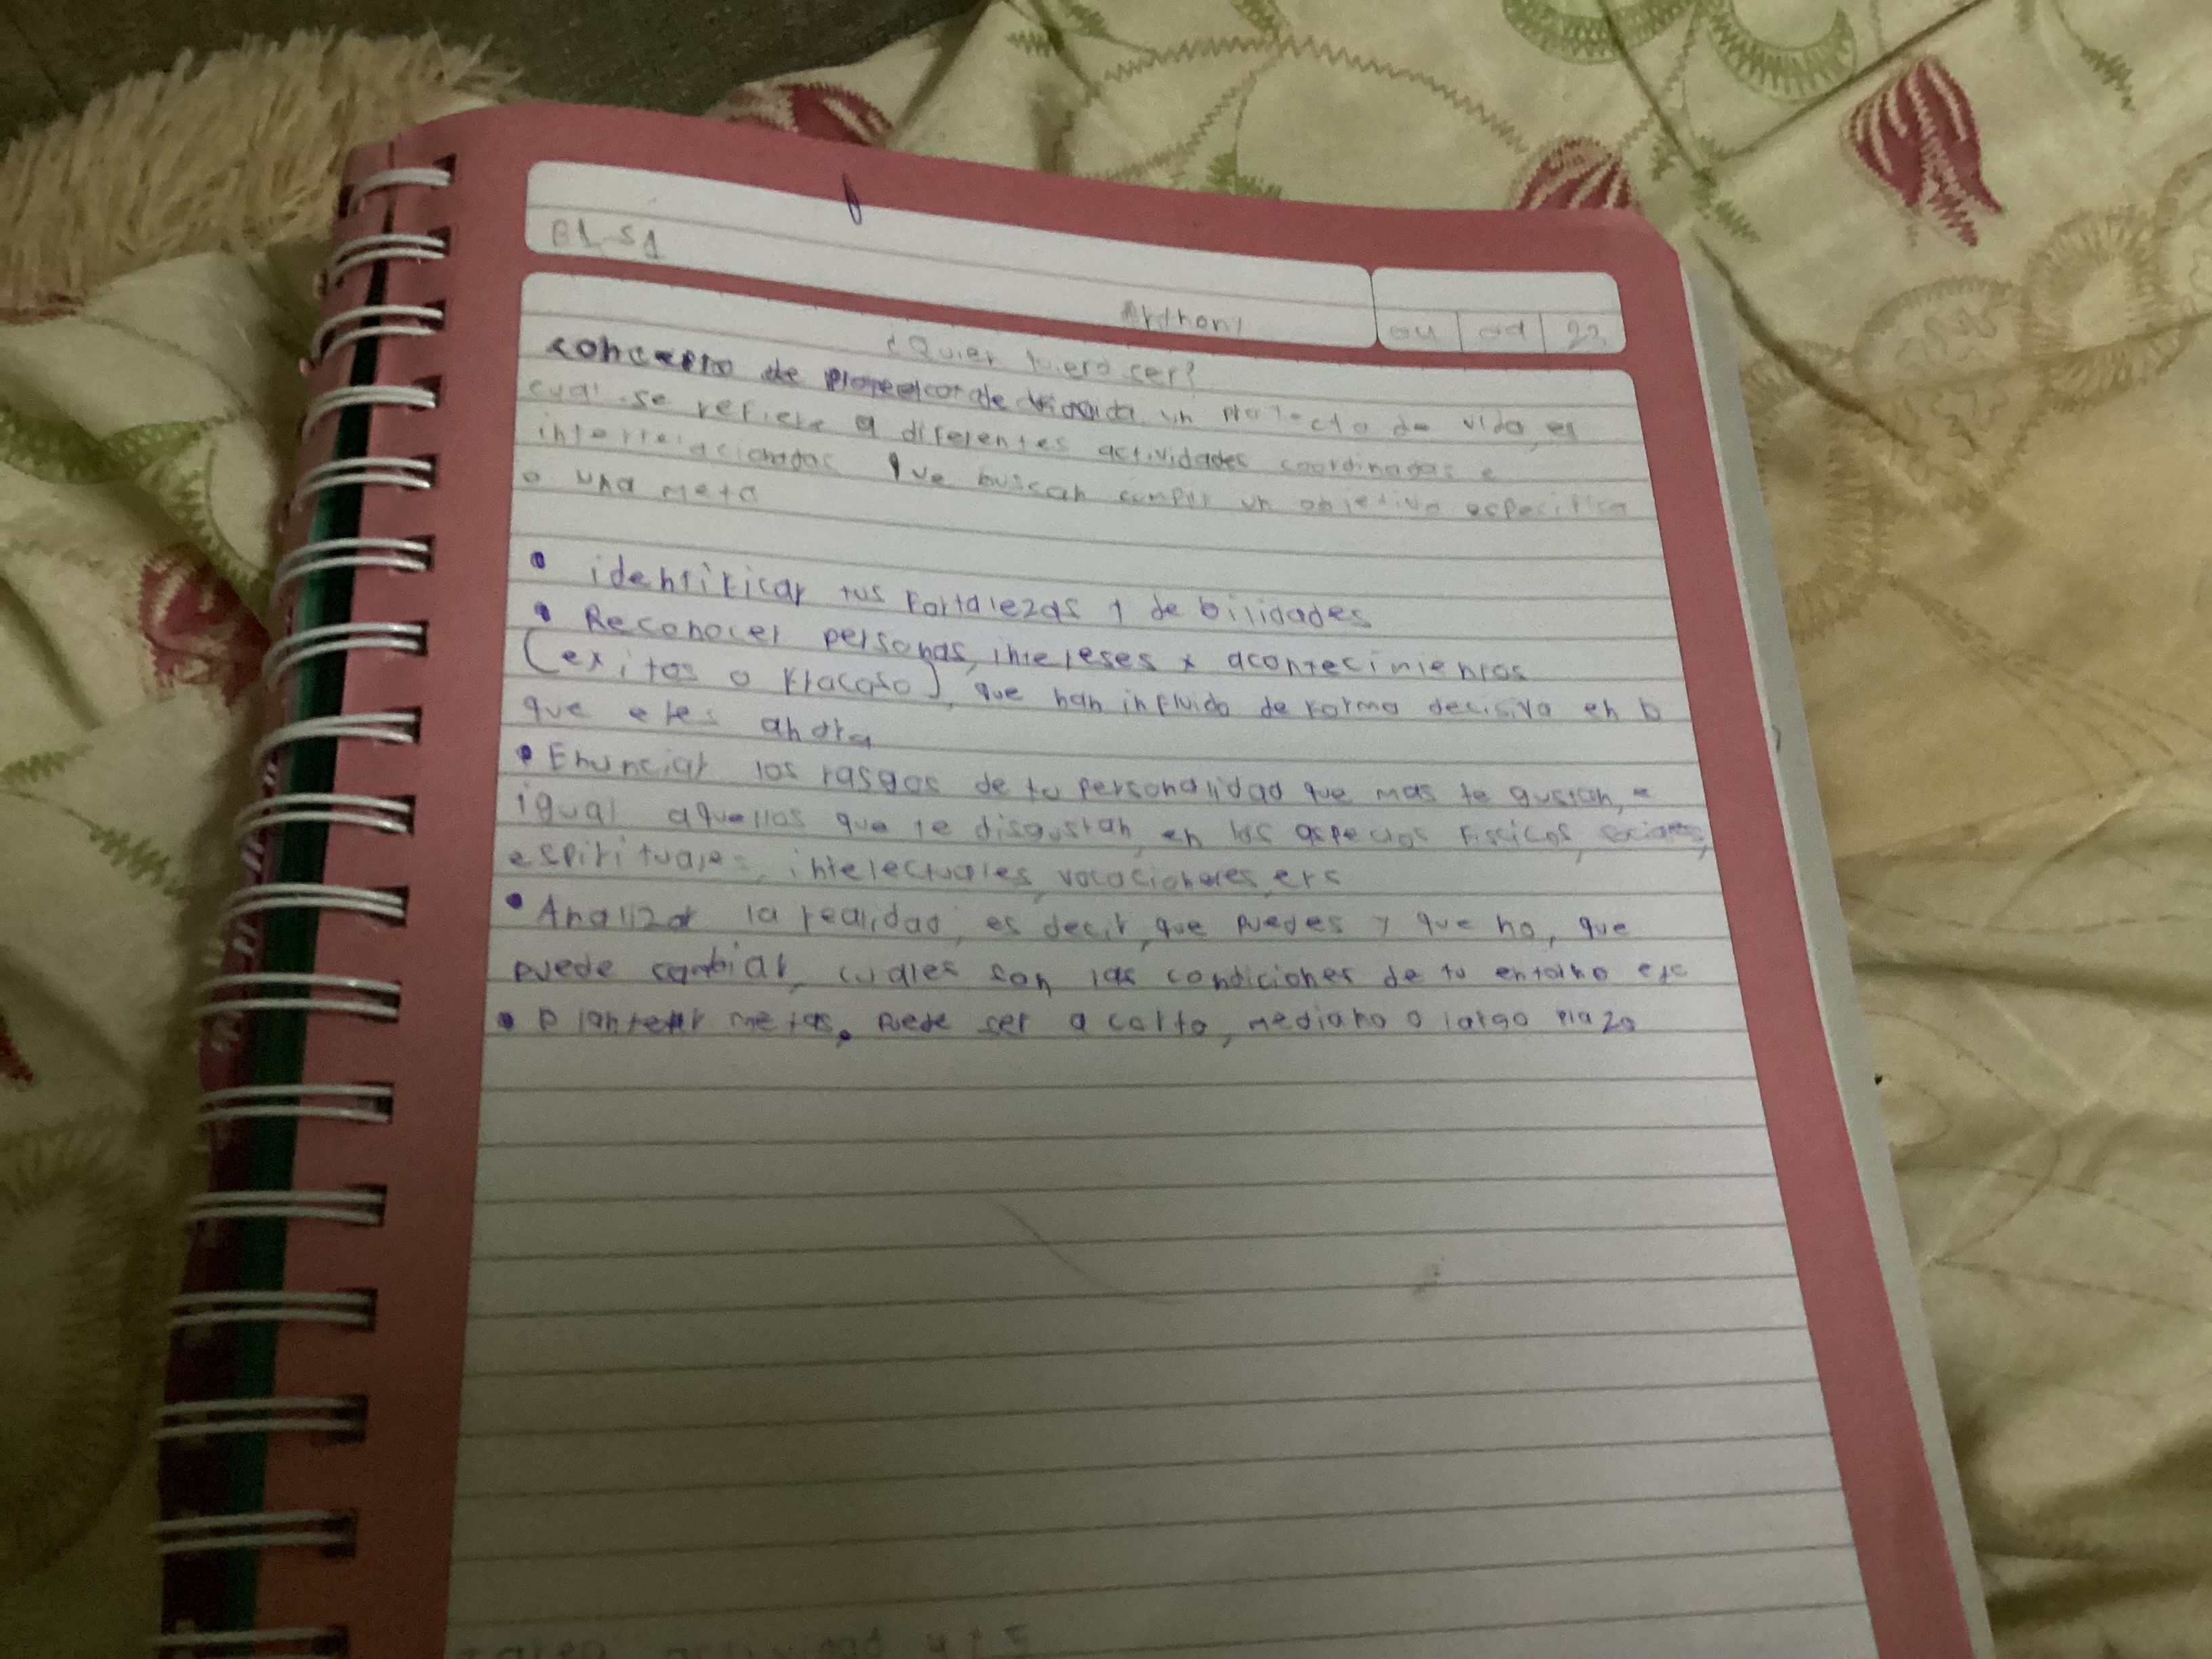 B1 S1
Anthony
04 | od | 22
¿Quien quiero ser?
concepto de proyecto de vida un proyecto de vida, es
cual se refiere a diferentes actividades coordinadas e
interrelacionadas que buscan cumplir un objetivo especifico
o una meta
• identificar tus fortalezas y debilidades
• Reconocer personas, intereses y acontecimientos
(exitos o fracaso), que han influido de forma decisiva en lo
que eres ahora
• Enunciar los rasgos de tu personalidad que mas te gustan, e
igual aquellos que te disgustan, en los aspectos fisicos, sociales,
espirituales, intelectuales, vocacionales, etc
• Analizar la realidad, es decir, que puedes y que no, que
puede cambiar, cuales son las condiciones de tu entorno etc
• Plantear metas. puede ser a corto, mediano o largo plazo
actividad 4 y 5